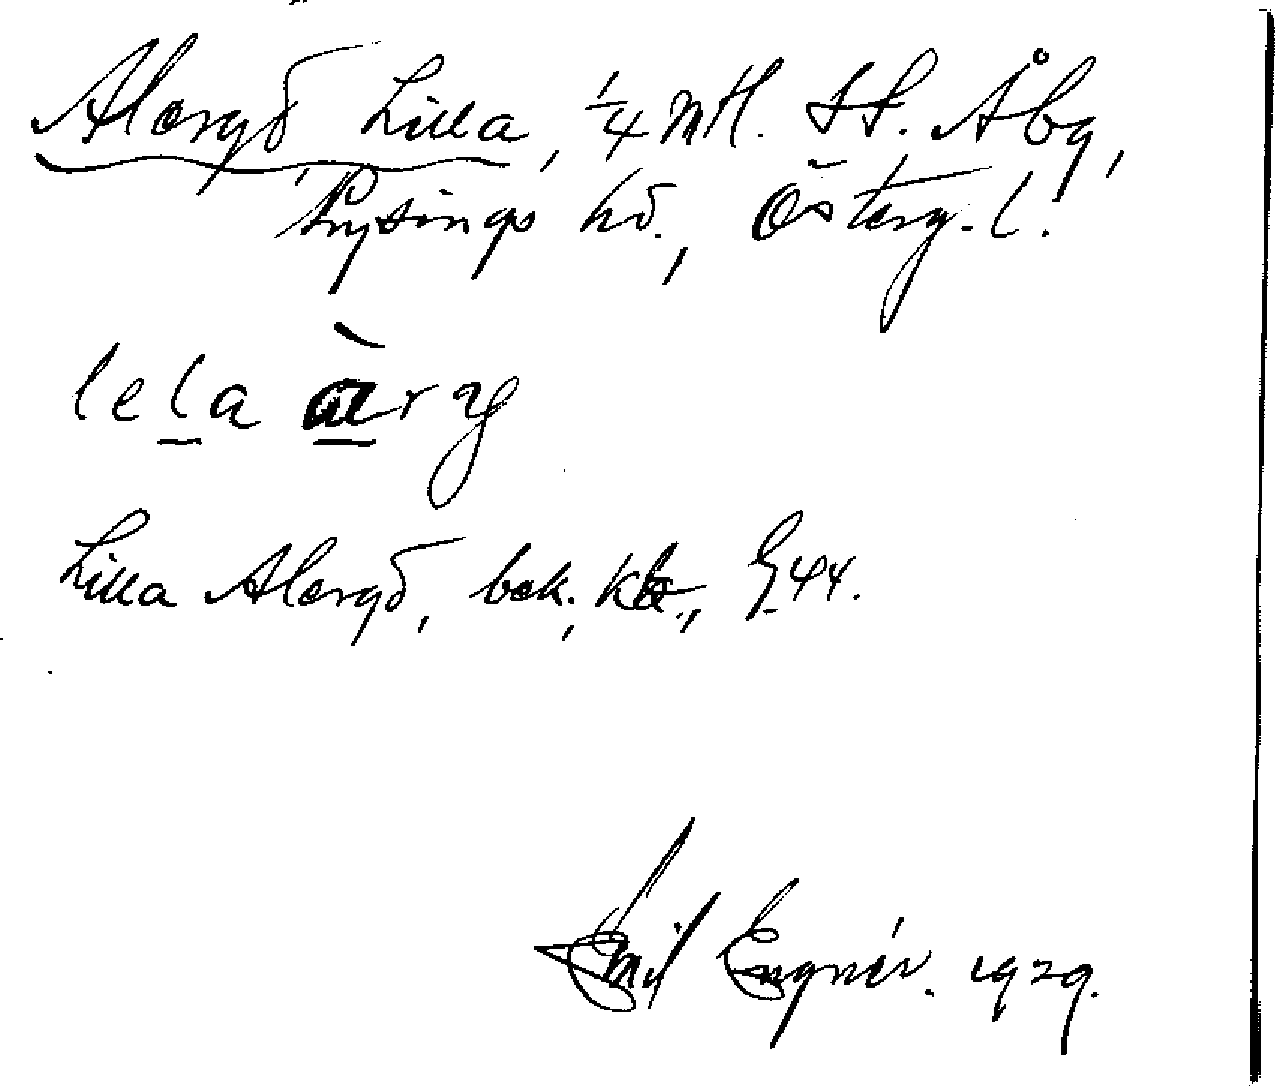 Aleryd Lilla, ¼ mtl. St. Åby,
Lysings hd., Österg. l.
lela àry
Lilla Aleryd, bok., E 44.
Emil Engnér. 1929.